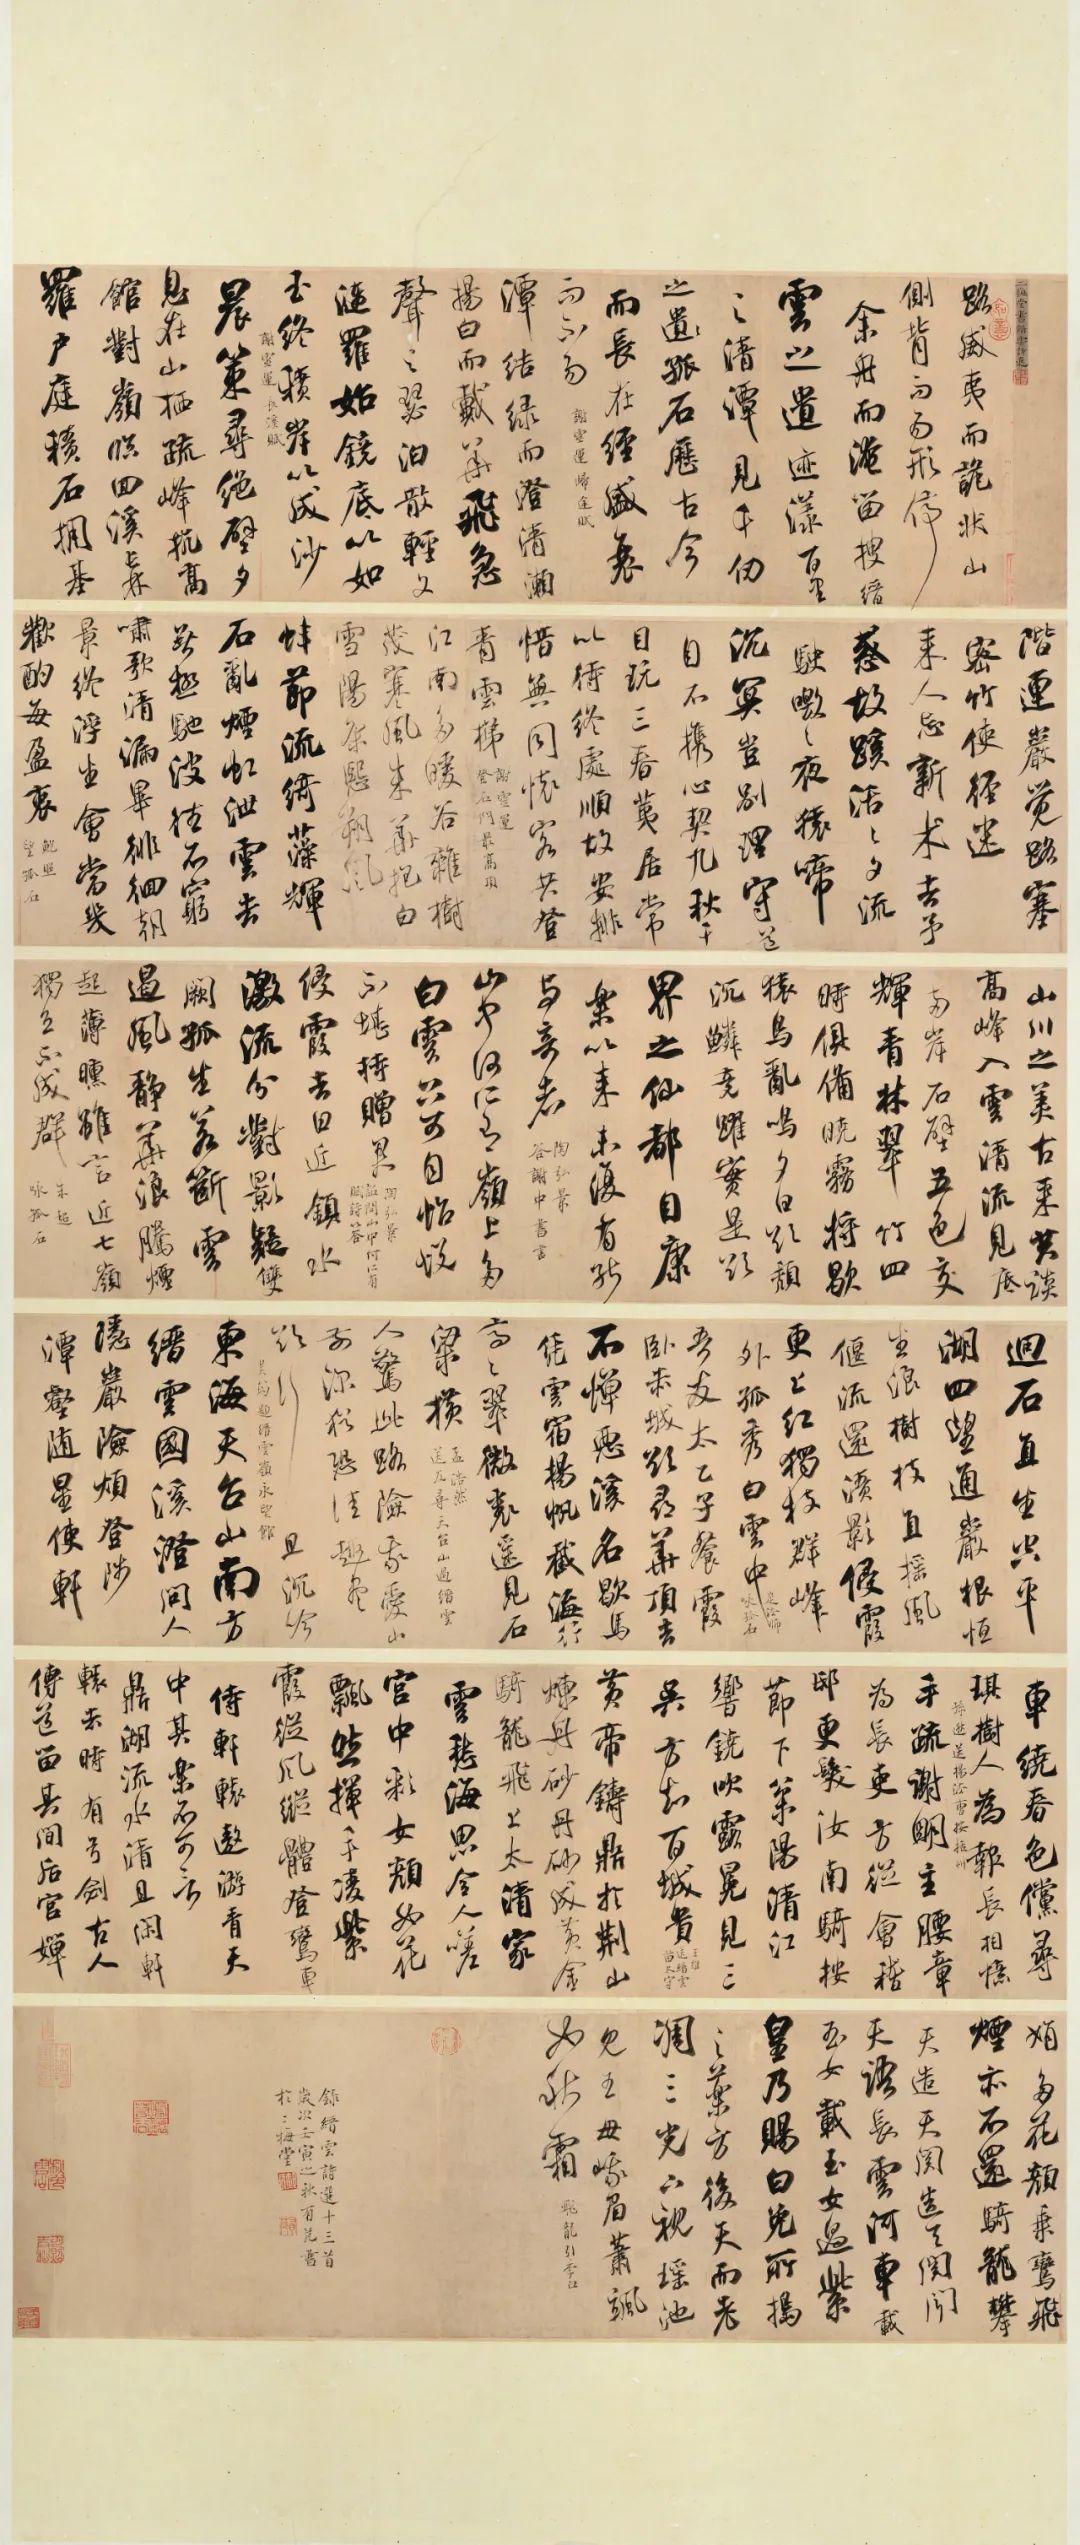 路威夷而詭狀山
側背而易形停
余舟而淹留搜縉
雲之遺迹漾百里
之清潭見千仞
之遺孤石歷古今
而長在經盛衰
而不易
謝靈運歸途賦
潭結綠而澄清瀨
揚白而戴華飛急
聲之瑟汩散輕文
漣羅始鏡底以如
玉終積岸以成沙
謝靈運長溪賦
晨策尋絕壁夕
息在山栖疏峰抗高
館對嶺臨迴溪長林
羅戶庭積石擁基
階連巖覺路塞
密竹使徑迷
來人忘新术去子
惑故蹊活活夕流
駛噭噭夜猿啼
沉冥豈別理守道
自不攜心契九秋幹
目玩三春荑居常
以待終處順故安排
惜無同懷客共登
青雲梯
謝靈運
登石門最高頂
江南多暖谷雜樹
茂寒峰朱華抱白
雪陽條熙朔風
蚌節流綺藻輝
石亂煙虹泄雲去
無極馳波往不窮
嘯歌清漏畢徘徊朝
景終浮生會當幾
歡酌每盈衷
鮑照
望孤石
山川之美古來共談
高峰入雲清流見底
兩岸石壁五色交
輝青林翠竹四
時俱備曉霧將歇
猿鳥亂鳴夕日欲頹
沉鱗競躍實是欲
界之仙都自康
樂以來未復有能
與奇者
陶弘景
答謝中書書
山中何所有嶺上多
白雲只可自怡悅
不堪持贈君
陶弘景
詔問山中何所有
賦詩答
侵霞去日近鎮水
激流分對影疑雙
闕孤生若斷雲
遏風靜華浪騰煙
起薄曛雖言近七嶺
獨立不成群
朱超
詠孤石
迴石直生空平
湖四望通巖根恒
生浪樹枝直搖風
偃流還漬影侵霞
更上紅獨拔群峰
外孤秀白雲中
詠孤石
吾友太乙子餐霞
臥赤城欲尋華頂去
不憚惡溪名歇馬
憑雲宿揚帆截海行
高高翠微裏遙見石
梁橫
孟浩然
尋天台山過縉雲
人驚此路險我愛山
前深猶恐佳趣盡
欲行且沉吟
題縉雲嶺永望館
東海天台山南方
縉雲國溪澄問人
隱巖險煩登陟
潭壑隨星使軒
車繞春色儻尋
琪樹人為報長相憶
手疏謝明主腰章
為長吏方從會稽
邸更發汝南騎按
節下松陽清江
響鐃吹露冕見三
吳方知百城貴
王維
送縉雲
苗太守
黃帝鑄鼎於荊山
煉丹砂丹砂成黃金
騎龍飛上太清家
雲愁海思令人嗟
宮中彩女顏如花
飄然揮手凌紫
霞從風縱體登鸞車
侍軒轅遨遊青天
中其樂不可言
鼎湖流水清且閑軒
轅去時有弓劍古人
傳道留其間後宮嬋
娟多花顏乘鸞飛
煙亦不還騎龍攀
天造天關造天關聞
天語長雲河車載
玉女載玉女過紫
皇乃賜白兔所搗
之藥方後天而老
凋三光下視瑤池
見王母蛾眉蕭颯
如秋霜
飛龍引二首
錄縉雲詩選十三首
歲次壬寅之秋
於三梅堂